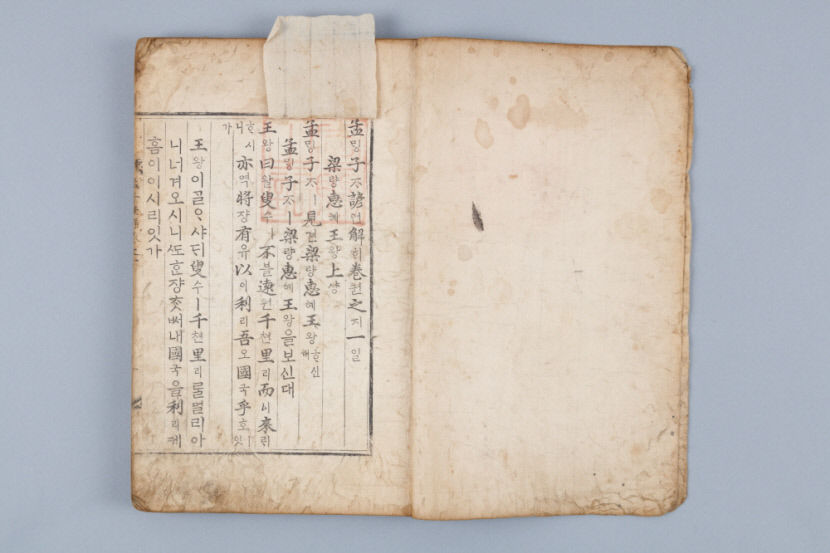 孟밍子ᄌᆞ諺언解ᄒᆡ卷권之지一일
梁량惠혜王왕上샹
孟밍子ᄌᆞㅣ見견梁량惠혜王왕ᄒᆞ신대
孟밍子ᄌᆞㅣ梁량惠혜王왕을보신대
王왕曰왈叟수ㅣ不블遠원千쳔里리而이來ᄅᆡ
ᄒᆞ시니亦역將쟝有유以이利리吾오國국乎호ㅣ잇
가
王왕이ᄀᆞᆯᄋᆞ샤ᄃᆡ叟수ㅣ千쳔里리ᄅᆞᆯ멀리아
니너겨오시니ᄯᅩᄒᆞᆫ쟝ᄎᆞᆺᄡᅥ내國국을利리케
홈이이시리잇가